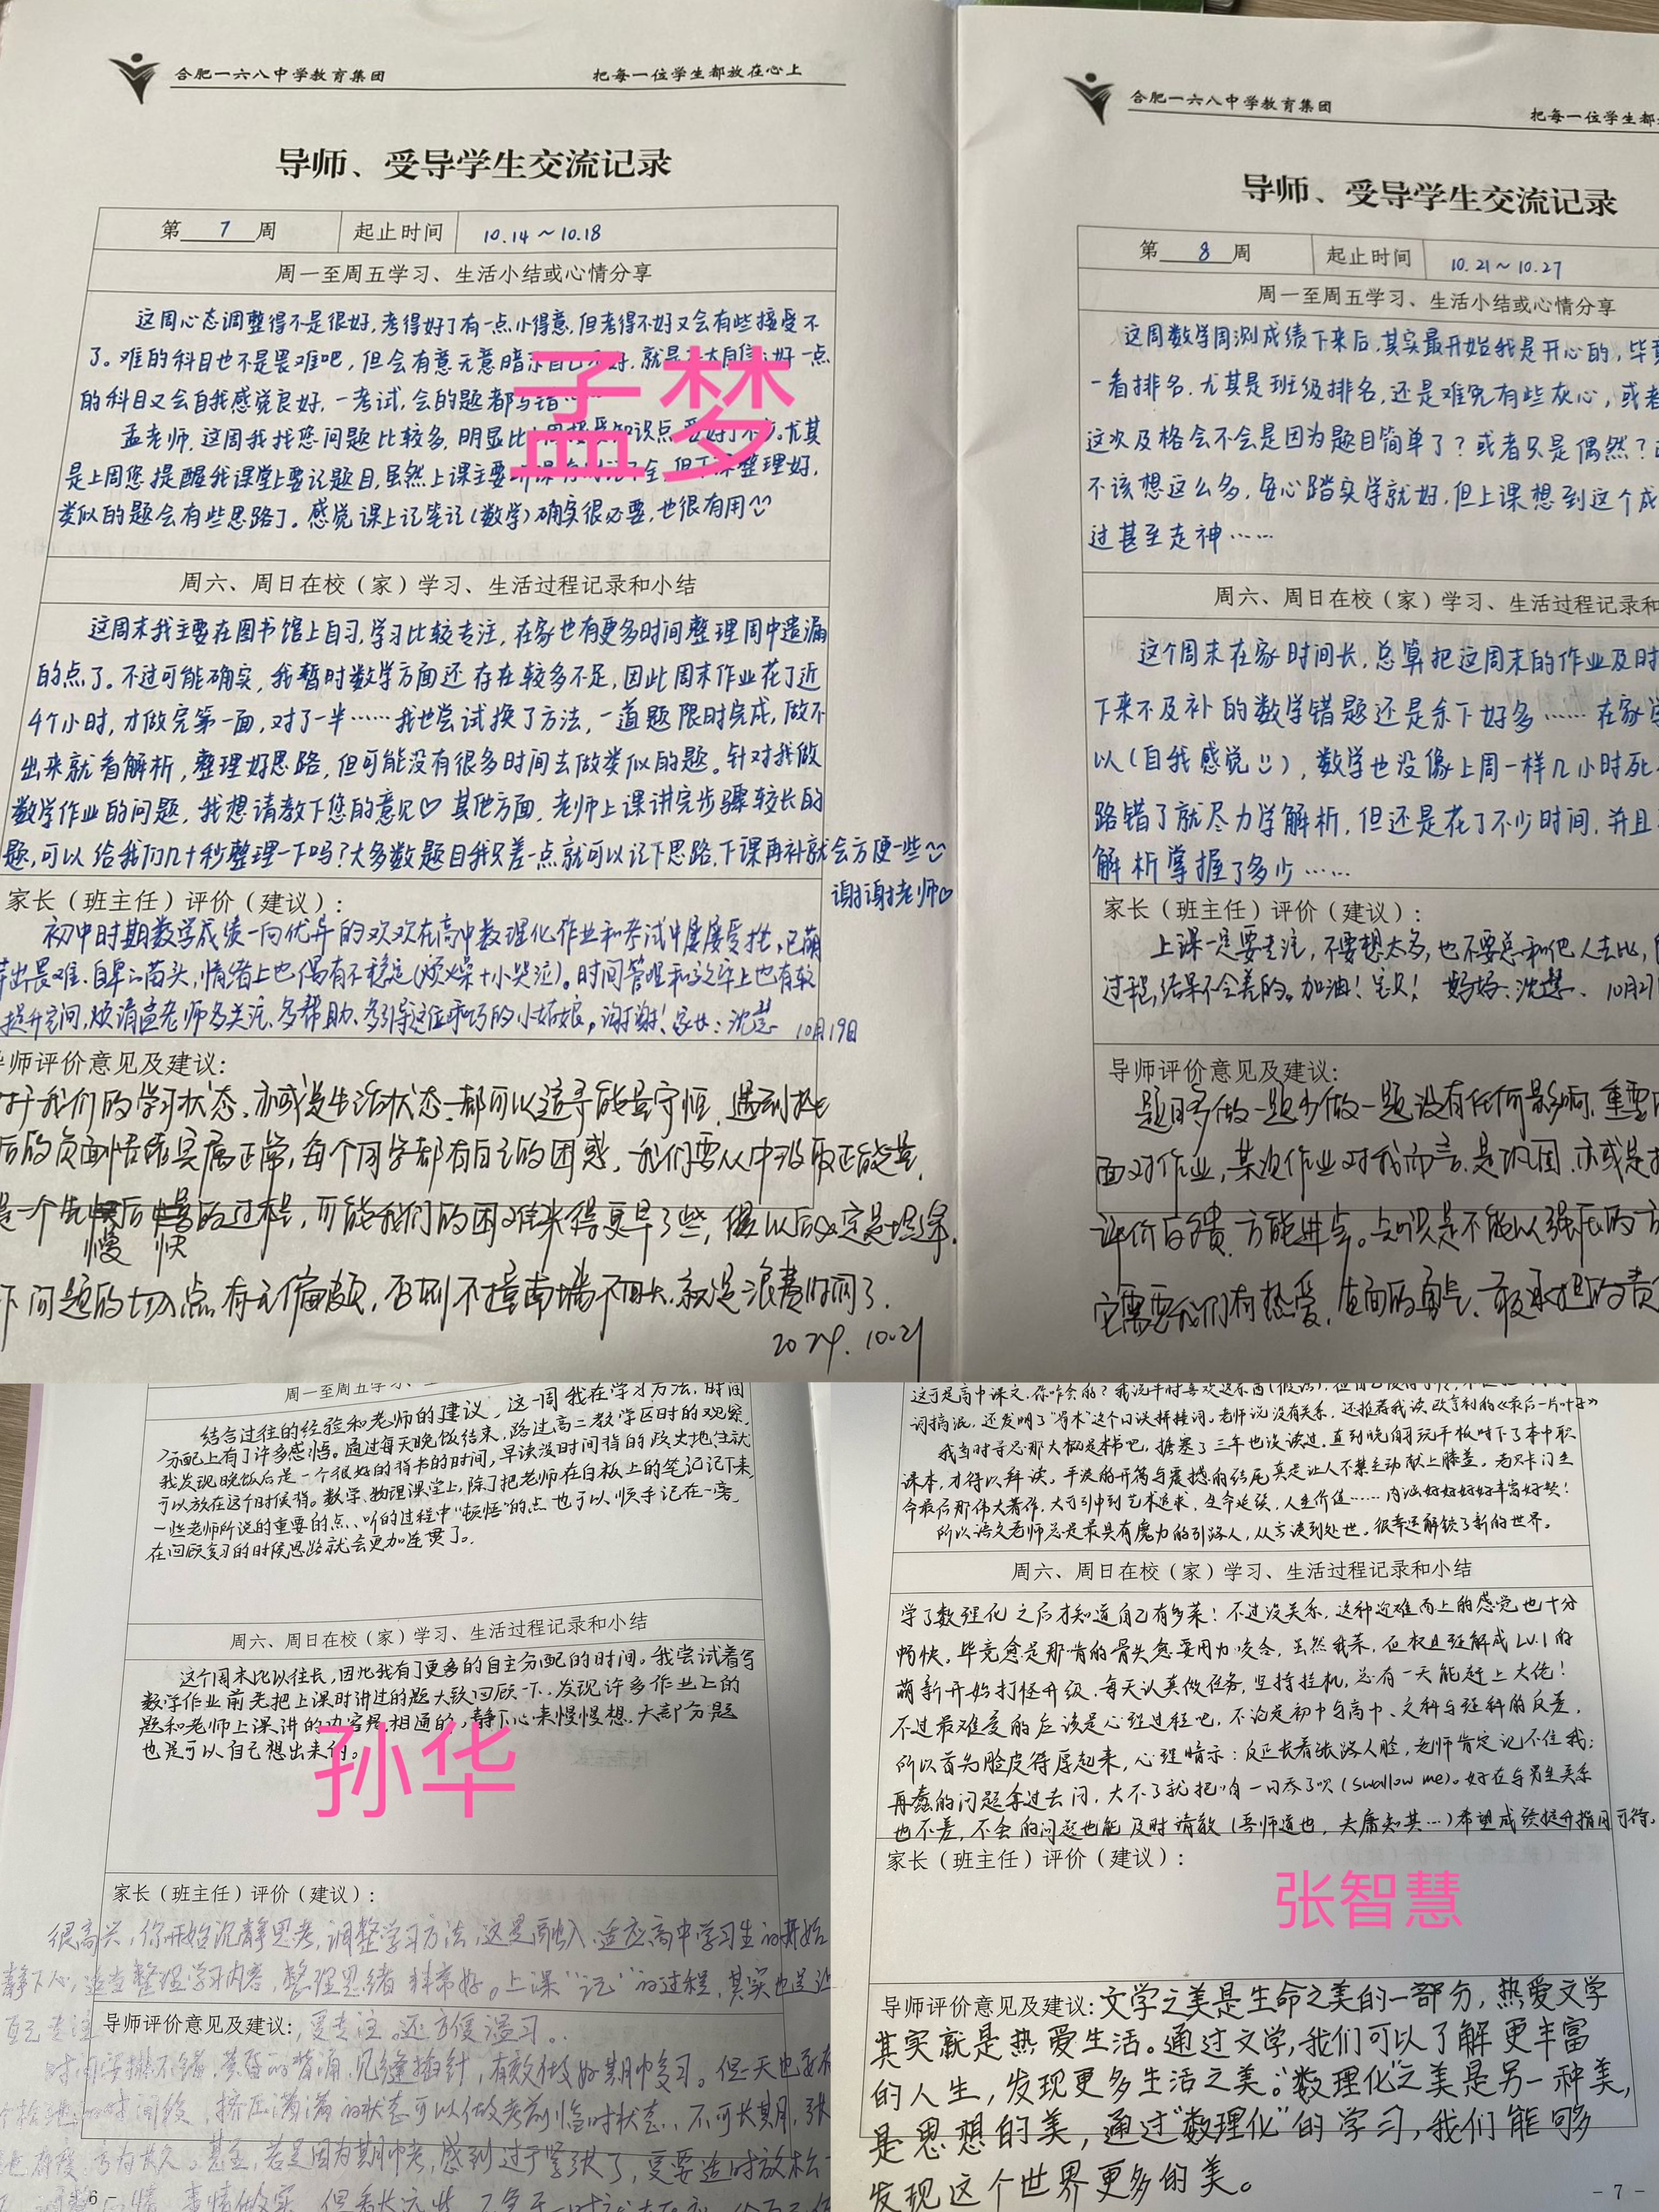 合肥一六八中学教育集团 把每一位学生都放在心上
导师、受导学生交流记录
第 7 周 起止时间 10.14~10.18
周一至周五学习、生活小结或心情分享
这周心态调整得不是很好,考得好了有一点小得意,但考得不好又会有些接受不
了。难的科目也不是畏难吧,但会有意无意暗示自己 好,就是 好一点
的科目又会自我感觉良好,一考试,会的题都写错
孟老师,这周我找您问题比较多,明显比 知识点 尤其
是上周您提醒我课堂上要记题目,虽然上课主要 整理好,
类似的题会有些思路了。感觉课上记笔记(数学)确实很必要,也很有用
孟梦
周六、周日在校(家)学习、生活过程记录和小结
这周末我主要在图书馆上自习,学习比较专注,在家也有更多时间整理周中遗漏
的点了。不过可能确实,我暂时数学方面还存在较多不足,因此周末作业花了近
4个小时,才做完第一面,对了一半……我也尝试换了方法,一道题限时完成,做不
出来就看解析,整理好思路,但可能没有很多时间去做类似的题。针对我做
数学作业的问题,我想请教下您的意见♡ 其他方面,老师上课讲完步骤较长的
题,可以给我们几十秒整理一下吗?大多数题目我只差一点就可以记下思路,下课再补就会方便一些
谢谢老师♡
家长(班主任)评价(建议):
初中时期数学成绩一向优异的欢欢在高中数理化作业和考试中屡屡受挫,已萌
芽出畏难、自卑之苗头,情绪上也偶有不稳定(烦燥+小哭泣)。时间管理和 上也有较
提升空间,烦请孟老师多关注、多帮助、多引导这位乖巧的小姑娘。谢谢!家长:沈慧 10月19日
导师评价意见及建议:
对于我们的学习状态,亦或是生活状态,都可以遵寻能量守恒,遇到挫
后的负面情绪实属正常,每个同学都有自己的困惑,我们要从中汲取正能量,
是一个先慢后快的过程,可能我们的困难来得更早了些,但以后必定是坦途。
下问题的切入点有无偏颇,否则不撞南墙不回头,就是浪费时间了。
2024.10.21
合肥一六八中学教育集团 把每一位学生都
导师、受导学生交流记录
第 8 周 起止时间 10.21~10.27
周一至周五学习、生活小结或心情分享
这周数学周测成绩下来后,其实最开始我是开心的,毕竟
一看排名,尤其是班级排名,还是难免有些灰心,或者
这次及格会不会是因为题目简单了?或者只是偶然?
不该想这么多,每心踏实学就好,但上课想到这个成
过甚至走神……
周六、周日在校(家)学习、生活过程记录和
这个周末在家时间长,总算把这周末的作业及时
下来不及补的数学错题还是余下好多……在家学
以(自我感觉),数学也没像上周一样几小时死
路错了就尽力学解析,但还是花了不少时间,并且
解析掌握了多少……
家长(班主任)评价(建议):
上课一定要专注,不要想太多,也不要总和他人去比,
过程,结果不会差的。加油!宝贝! 妈妈:沈慧 10月27
导师评价意见及建议:
题目多做一题少做一题没有任何影响,重要
面对作业,某次作业对我而言,是巩固,亦或是
评价反馈,方能进步。 只是不能以强压的方
它需要我们有热爱,直面的勇气、敢承担的责
周一至周五学习、
结合过往的经验和老师的建议,这一周我在学习方法、时间
分配上有了许多感悟。通过每天晚饭结束,路过高二教学区时的观察,
我发现晚饭后是一个很好的背书的时间,早读没时间背的政史地生就
可以放在这个时候背。数学、物理课堂上,除了把老师在白板上的笔记记下来,
一些老师所说的重要的点、听的过程中“顿悟”的点也可以顺手记在一旁,
在回顾复习的时候思路就会更加连贯了。
周六、周日在校(家)学习、生活过程记录和小结
这个周末比以往长,因此我有了更多的自主分配的时间。我尝试着写
数学作业前先把上课时讲过的题大致回顾一下,发现许多作业上的
题和老师上课讲的内容是相通的,静下心来慢慢想,大部分题
也是可以自己想出来的。
孙华
家长(班主任)评价(建议):
很高兴,你开始沉静思考,调整学习方法,这是融入、适应高中学习生 的开始
静下心,适当整理学习内容,整理思绪非常好。上课“记”的过程,其实也是让
自己专注
导师评价意见及建议: 更专注。还方便温习。
时间安排不错,黄昏的背诵,见缝插针,有效做好期中复习。但一天也要有
个 的时间段,挤压满满的状态可以做考前临时状态,不可长期,张
弛有度,方为长久。甚至,若是因为期中考,感到过于紧张了,更要适时放松一
6 -
这可是高中课文,你咋会的?我说平时喜欢这东西
词搞混,还发明了 这个口误拼接词。老师说没有关系,还推荐我读欧亨利的《最后一片叶子》
我当时寻思那大概是本书吧,搪塞了三年也没读过。直到晚自习玩平板时下了本中职
课本,才得以拜读。平淡的开篇与震撼的结尾真是让人不禁主动献上膝盖。老贝尔门生
命最后那伟大著作,大可引申到艺术追求,生命延续,人生价值……内涵好好好好丰富好赞!
所以语文老师总是最具有魔力的引路人,从言谈到处世。很幸运解锁了新的世界。
周六、周日在校(家)学习、生活过程记录和小结
学了数理化之后才知道自己有多菜!不过没关系,这种迎难而上的感觉也十分
畅快,毕竟愈是难啃的骨头愈要用力咬合,虽然我菜,但权且理解成Lv.1的
萌新开始打怪升级,每天认真做任务,坚持挂机,总有一天能赶上大佬!
不过最难受的应该是心理过程吧,不论是初中与高中、文科与理科的反差,
所以首先脸皮得厚起来,心理暗示:反正长着张路人脸,老师肯定记不住我;
再蠢的问题拿过去问,大不了就把咱一口吞了呗(swallow me)。好在与男生关系
也不差,不会的问题也能及时请教(吾师道也,夫庸知其…)希望成绩提升指日可待。
家长(班主任)评价(建议):
张智慧
导师评价意见及建议:文学之美是生命之美的一部分,热爱文学
其实就是热爱生活。通过文学,我们可以了解更丰富
的人生,发现更多生活之美。“数理化”之美是另一种美,
是思想的美,通过“数理化”的学习,我们能够
发现这个世界更多的美。
- 7 -